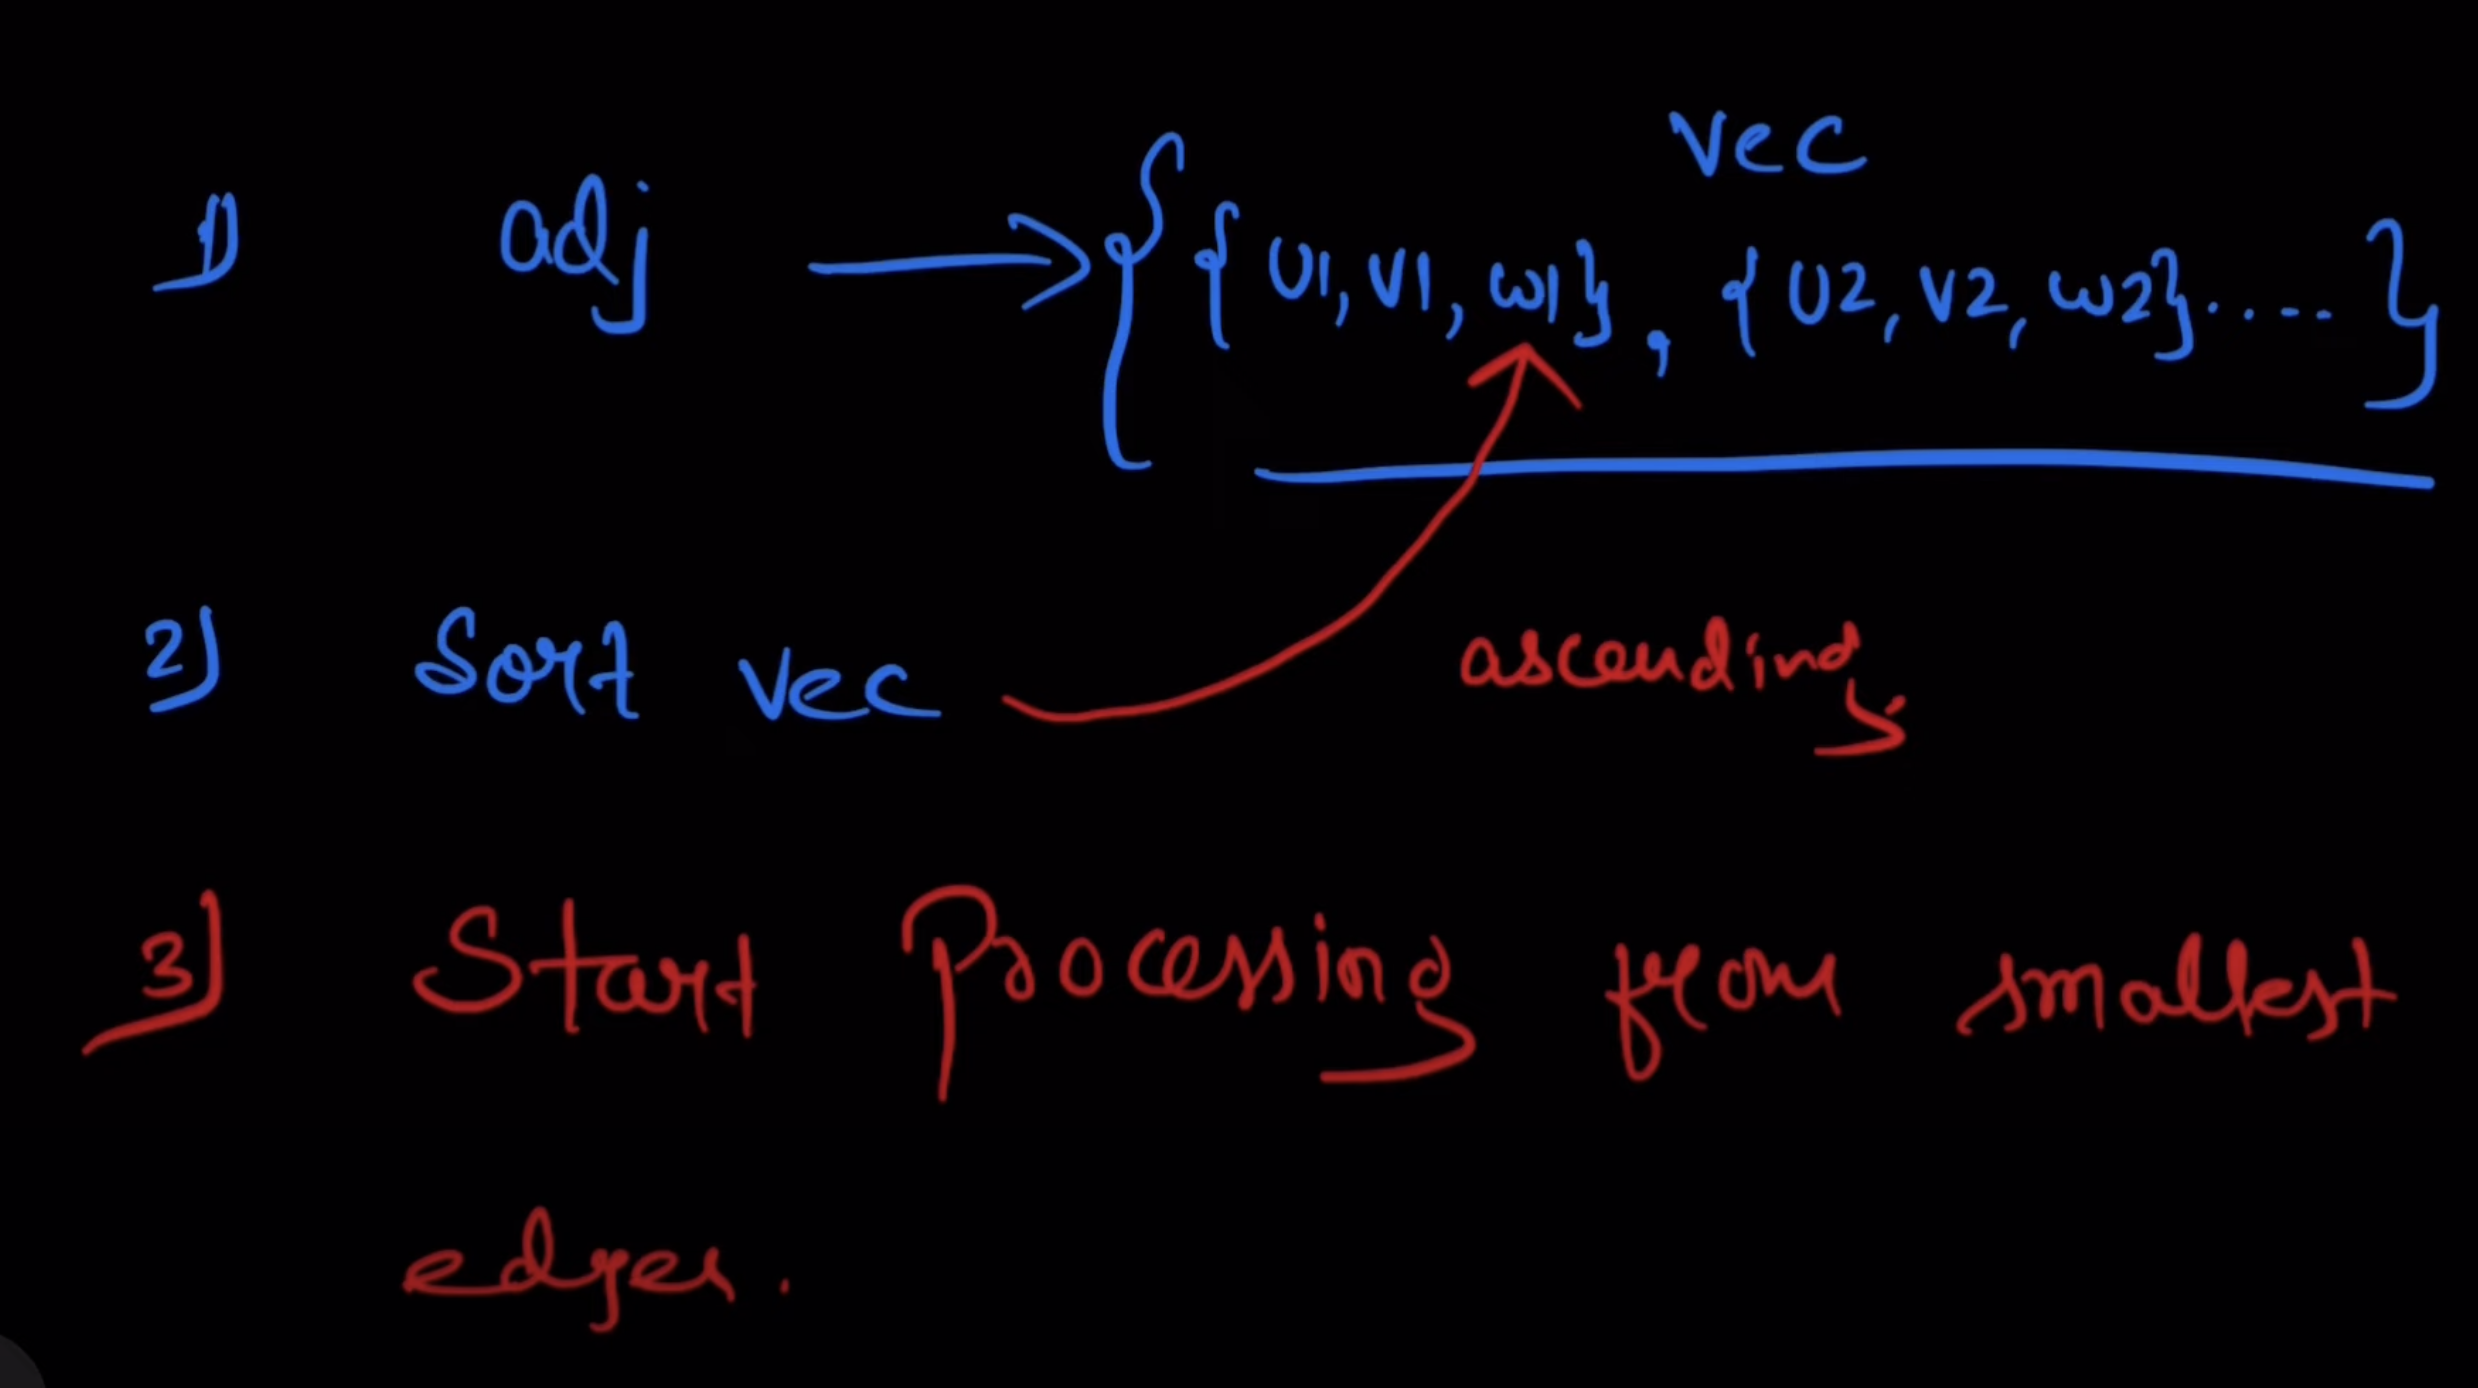 vec
1) adj → {{U1, V1, w1}, {U2, V2, w2}.....}
2) Sort vec ascending
3) Start Processing from smallest
edges.